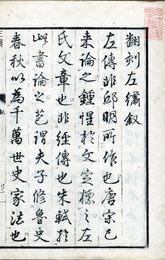 翻刻左繡叙
左傳非邱明所作也唐宋已
来論之鍾惺於文宣標之左
氏文章也非經傳也朱軾於
此書論之芑謂夫子修魯史
春秋以為千萬世史家法也